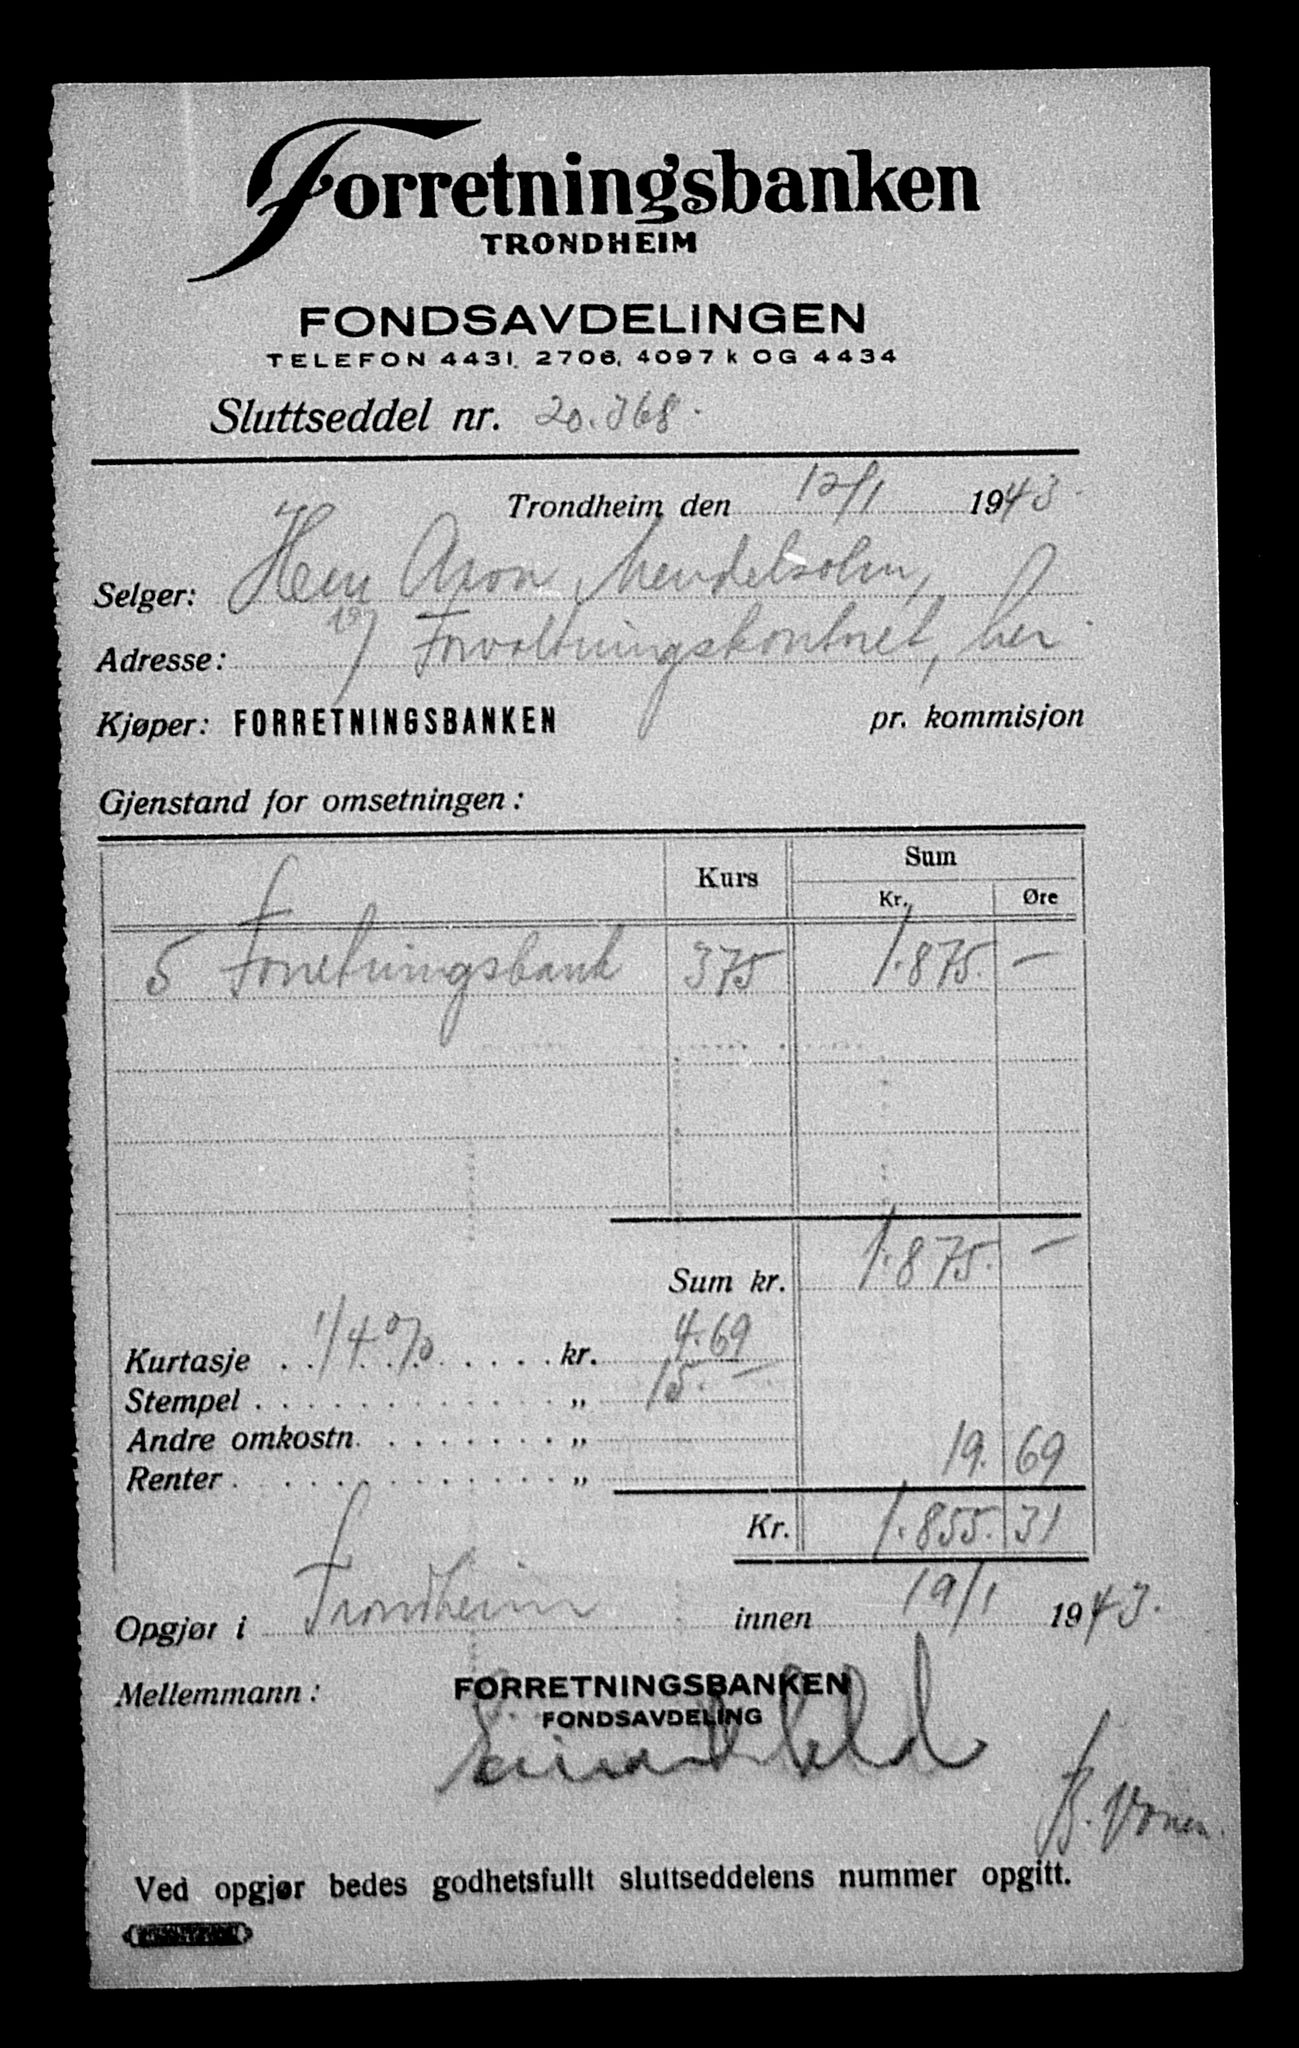 Forretningsbanken
TRONDHEIM
FONDSAVDELINGEN
TELEFON 4431, 2706, 4097 k OG 4434
Sluttseddel nr. 20.368.
Trondheim den 12/1 1943.
Selger: Herr Aron Mendelsohn,
Adresse: Forvaltningskontoret, her.
Kjøper: FORRETNINGSBANKEN pr. kommisjon
Gjenstand for omsetningen:
Kurs Sum
Kr. Øre
5 Forretningsbank 375 1.875. —
Sum kr. 1.875. —
Kurtasje 1/4 % kr. 4.69
Stempel „ 15. —
Andre omkostn. „
Renter „ 19. 69
Kr. 1.855. 31
Opgjør i Trondheim innen 19/1 1943.
Mellemmann: FORRETNINGSBANKEN
FONDSAVDELING
Ved opgjør bedes godhetsfullt sluttseddelens nummer opgitt.